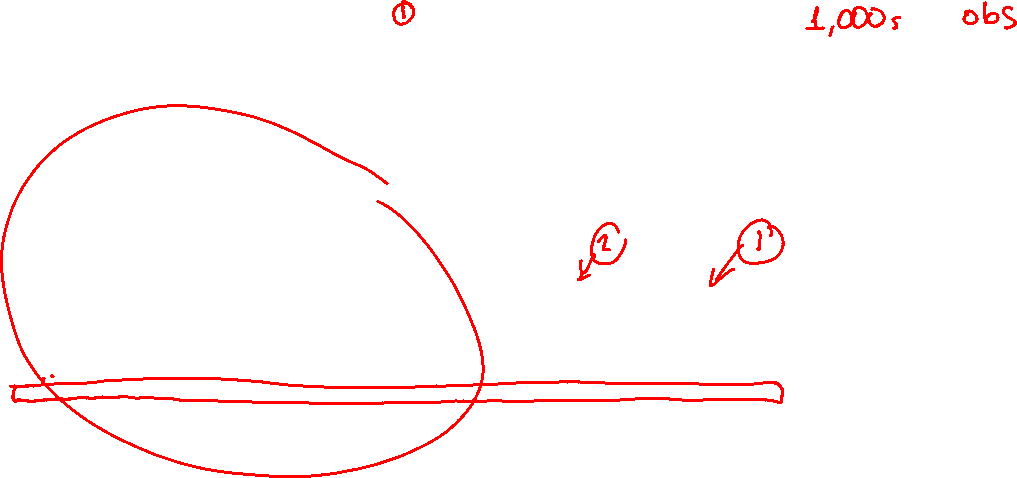 ① 1,000s obs
② ①'